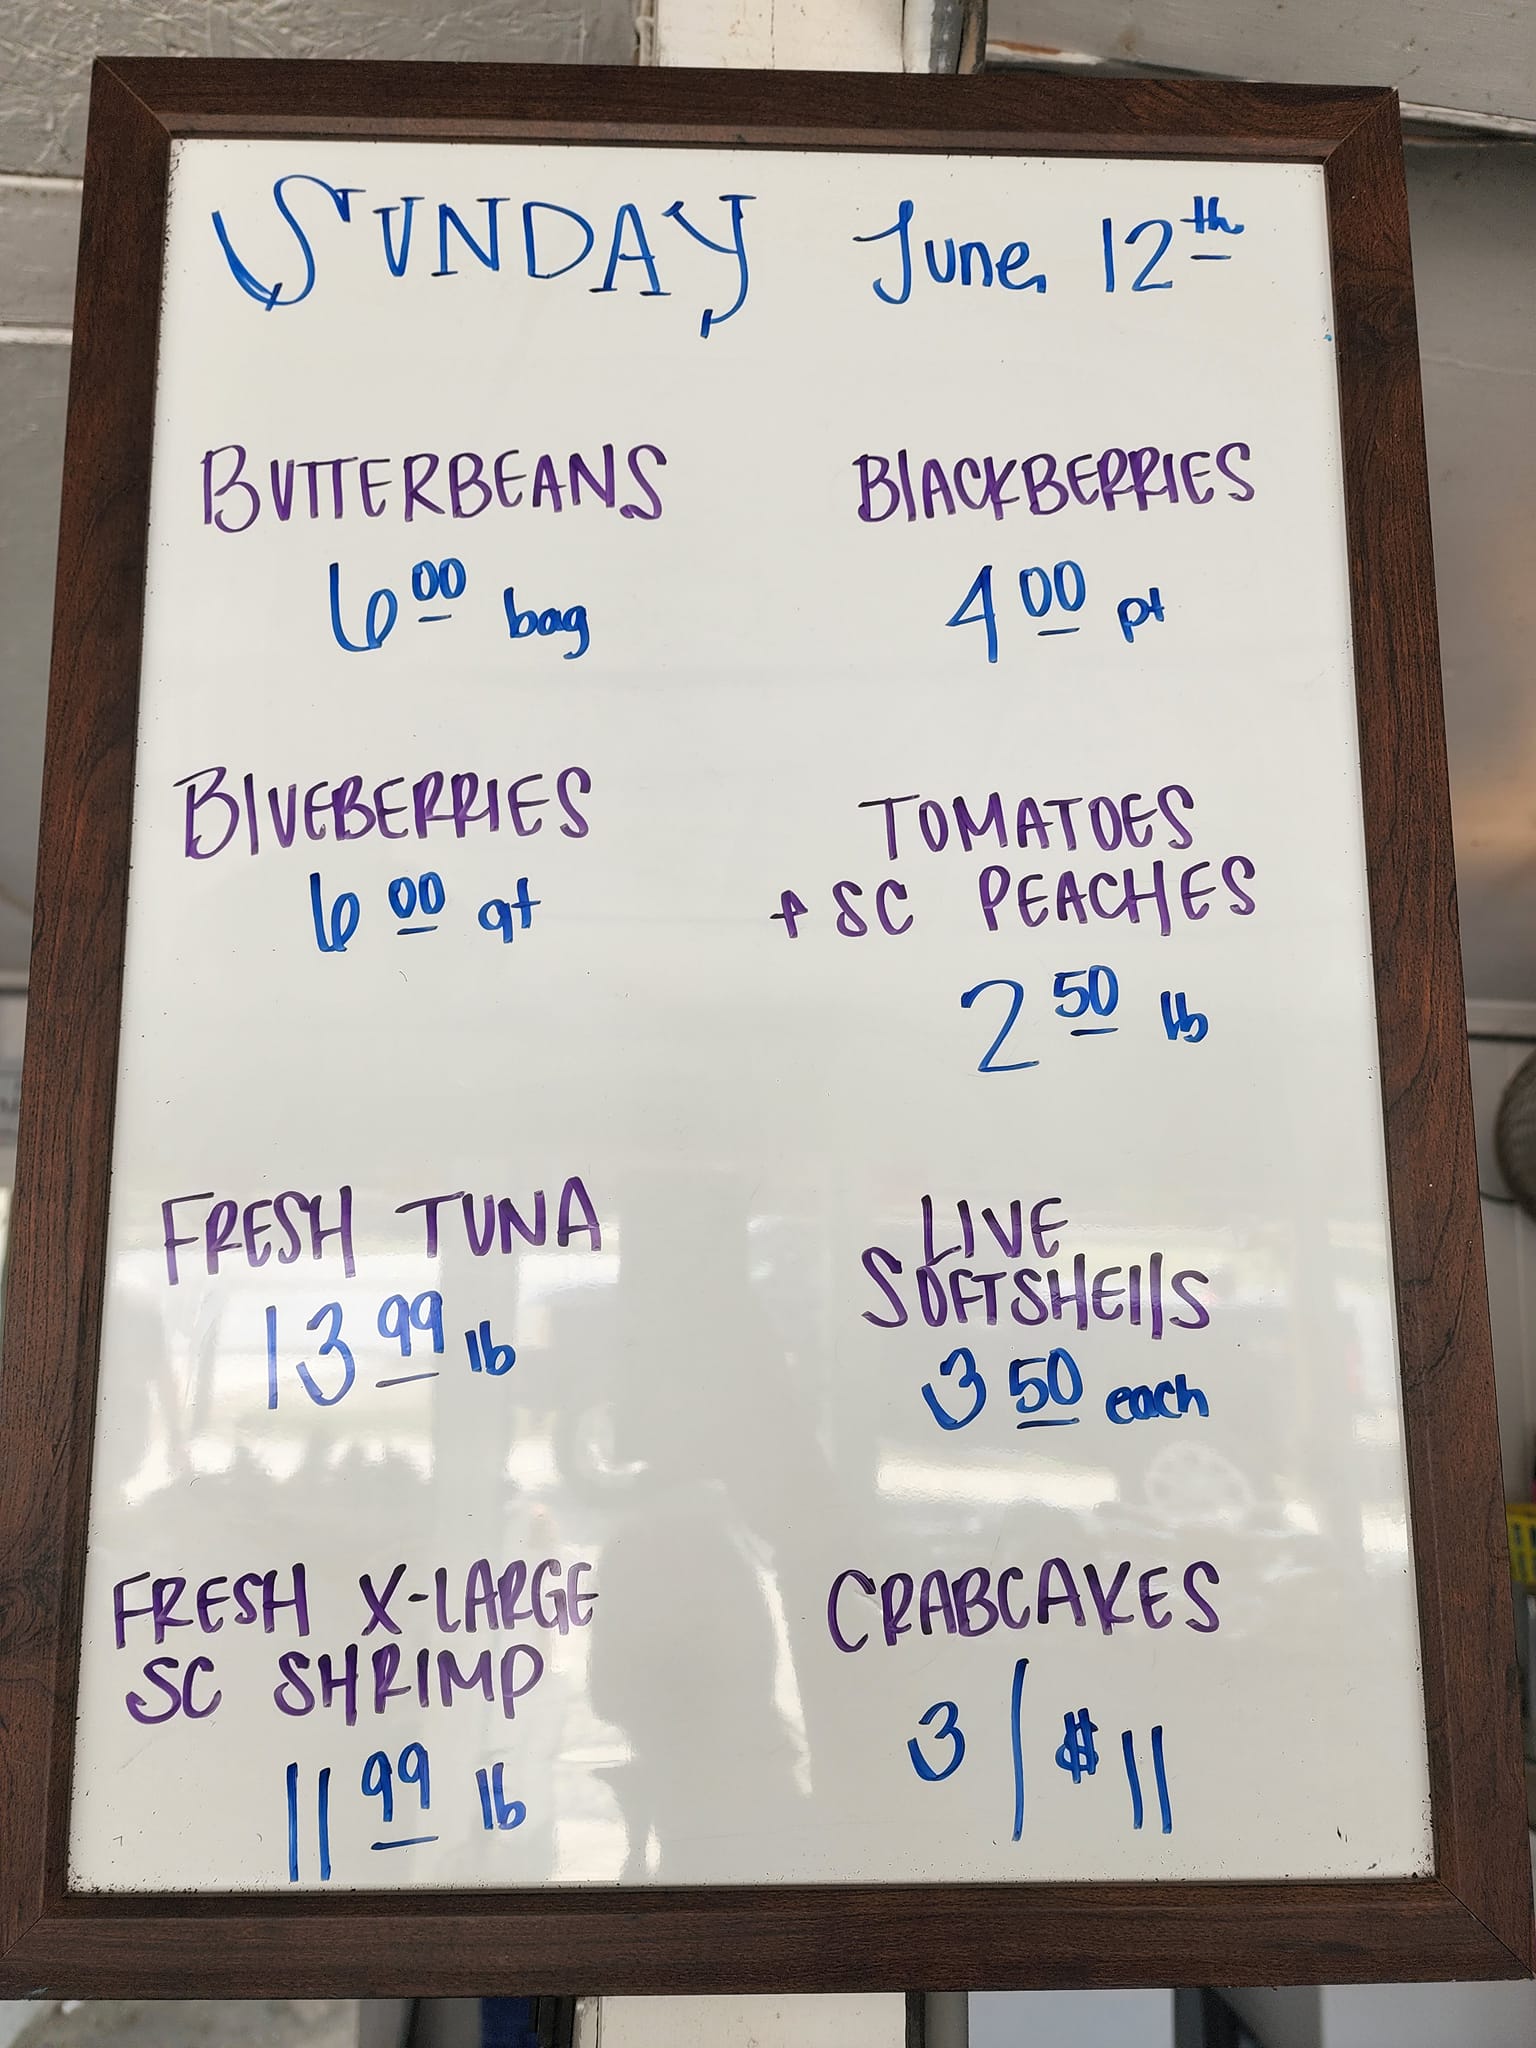 SUNDAY, June 12th
BUTTERBEANS
6 00 bag
BlACKBERRIES
4 00 pt
BlUEBERRIES
6 00 qt
TOMATOES
+ SC PEACHES
2 50 lb
FRESH TUNA
13 99 lb
LIVE
SOFTSHEllS
3 50 each
FRESH X-LARGE
SC SHRIMP
11 99 lb
CRABCAKES
3 / $11